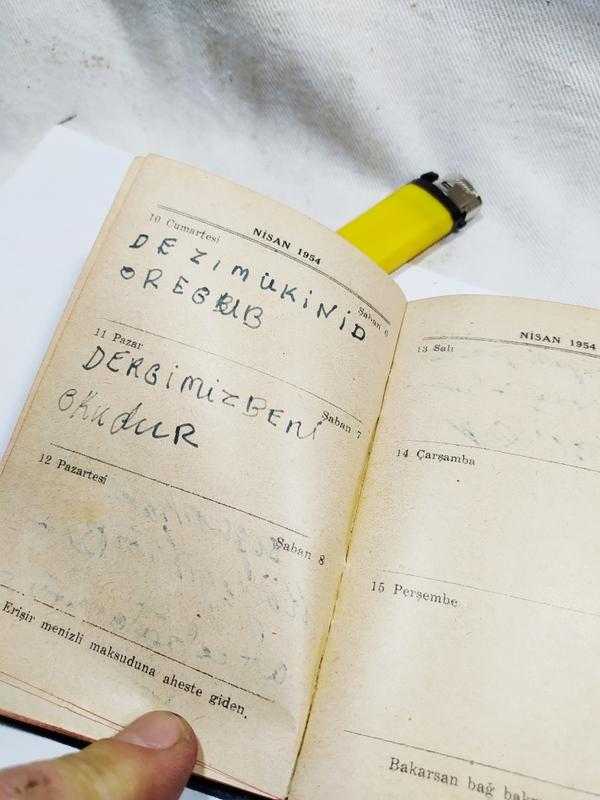 NİSAN 1954
10 Cumartesi
Şaban 6
DEZİMÜKİNİD
OREGBUB
11 Pazar
Şaban 7
DERGİMİZBENİ
OKUdUR
12 Pazartesi
Şaban 8
Erişir menizli maksuduna aheste giden.
NİSAN 1954
13 Salı
14 Çarşamba
15 Perşembe
Bakarsan bağ